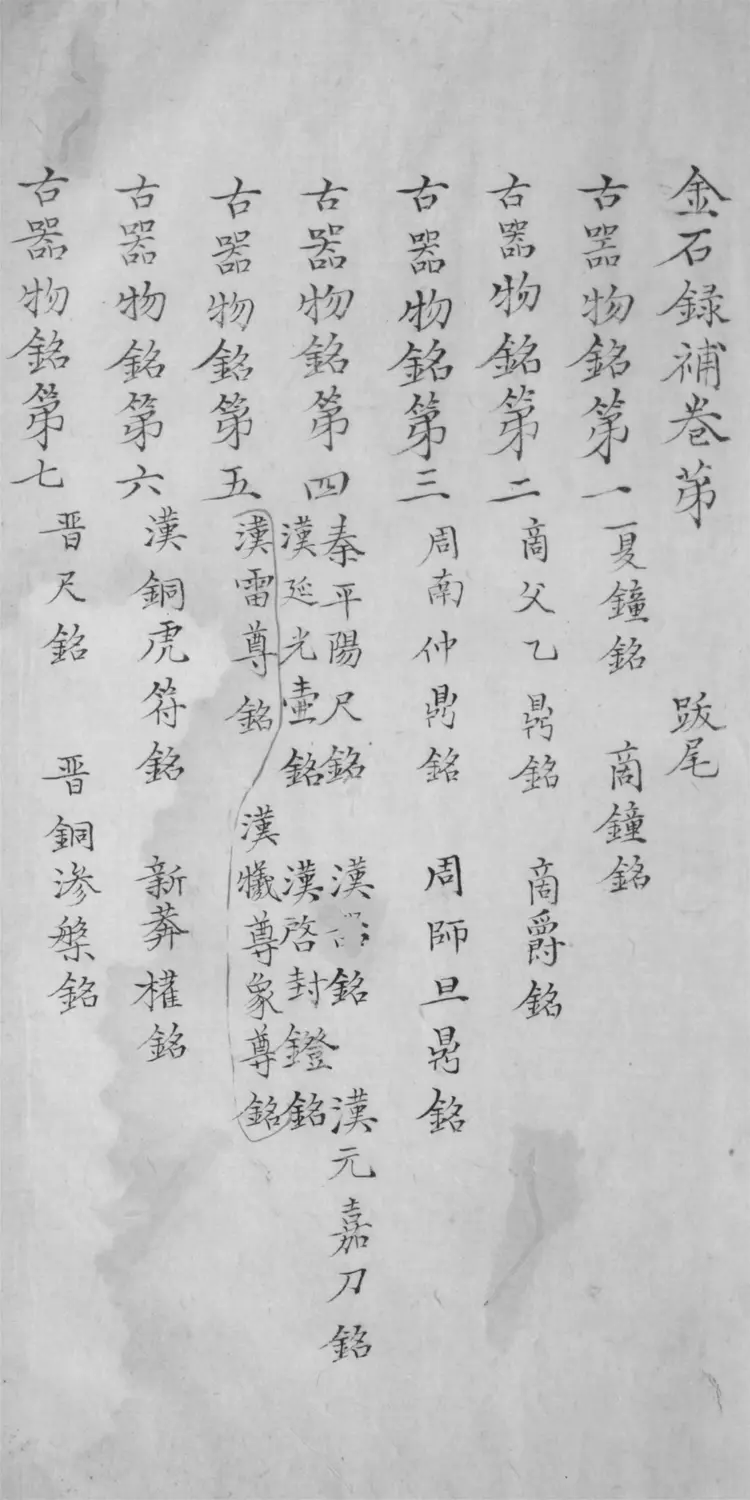 金石録補卷苐 跋尾
古器物銘第一 夏鐘銘 商鐘銘
古器物銘第二 商父乙鼎銘 商爵銘
古器物銘第三 周南仲鼎銘 周師旦鼎銘
古器物銘第四 秦平陽尺銘 漢銘 漢元嘉刀銘
漢延光壷銘 漢啓封鐙銘
古器物銘第五 漢雷尊銘 漢犧尊象尊銘
古器物銘第六 漢銅虎符銘 新莽權銘
古器物銘第七 晋尺銘 晋銅滲槃銘